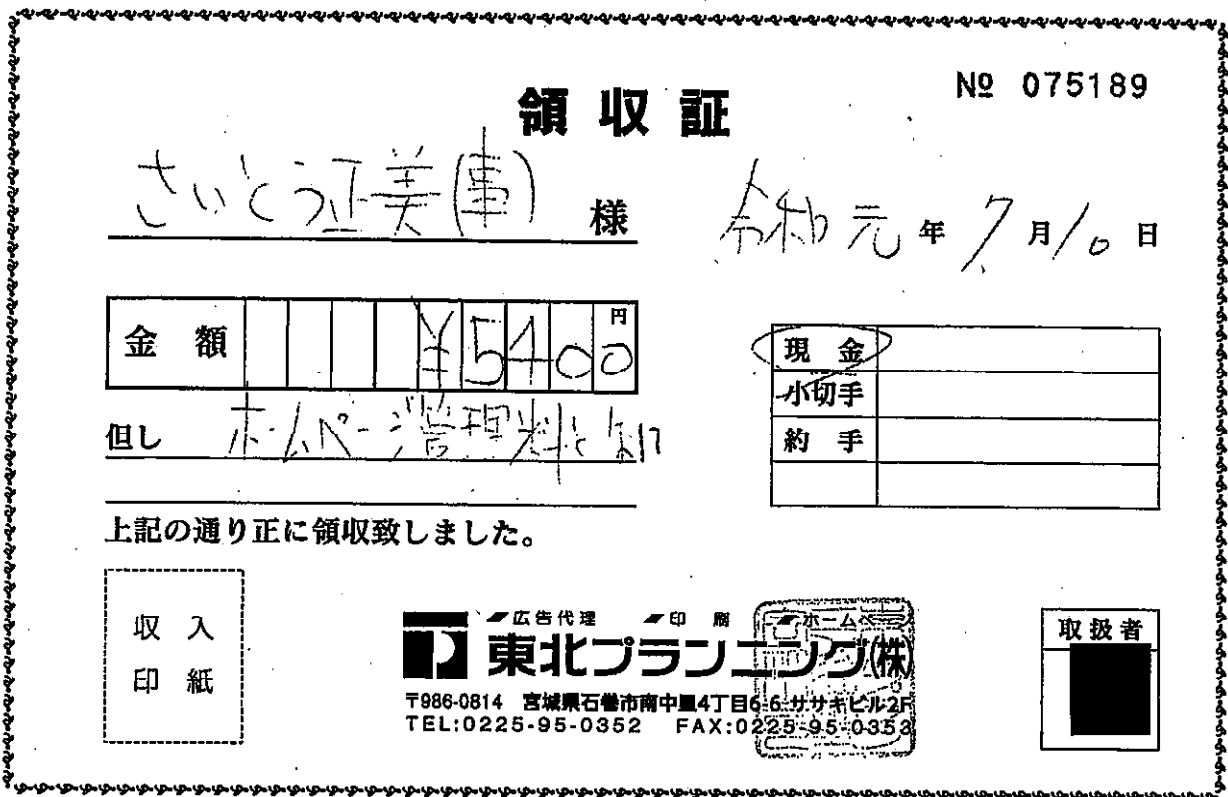 領収証
№ 075189
さいとう正美(事) 様
令和 元 年 7 月 10 日
金額 ¥5400 円
但し ホームページ管理料として
上記の通り正に領収致しました。
現金
小切手
約手
収入
印紙
広告代理 印刷 ホームページ
東北プランニング(株)
〒986-0814 宮城県石巻市南中里4丁目6-6 ササキビル2F
TEL:0225-95-0352 FAX:0225-95-0353
取扱者